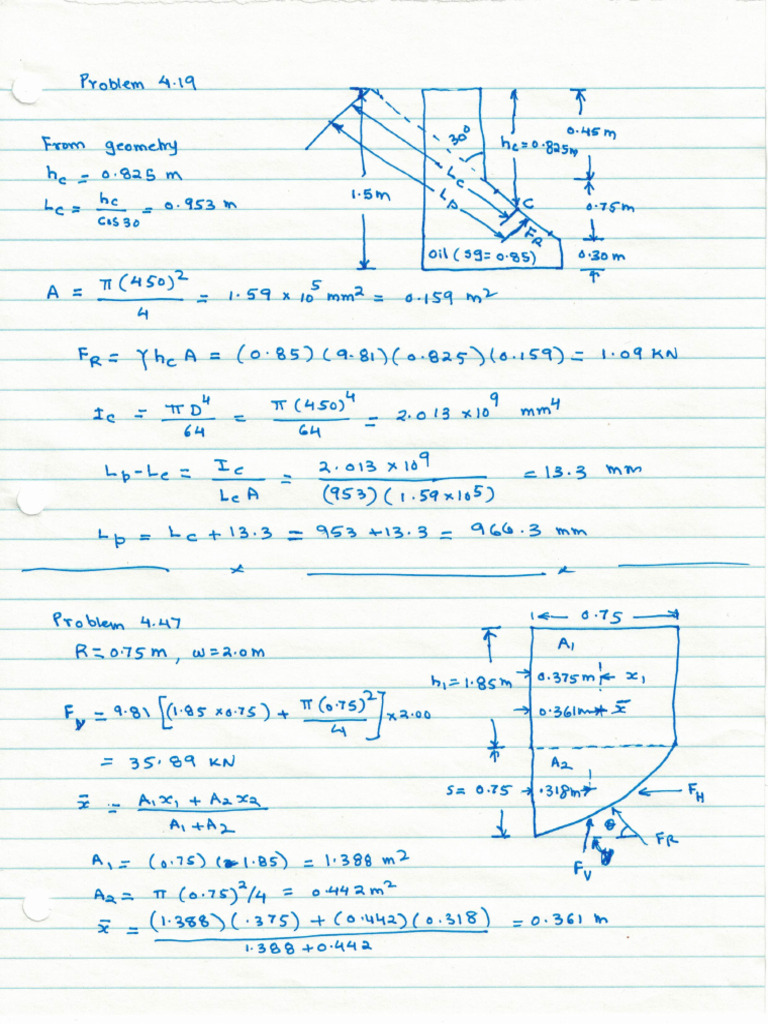 Problem 4.19
From geometry
h_c = 0.825 m
L_c = h_c / cos30 = 0.953 m
1.5m
30°
h_c = 0.825m
0.45m
L_c
L_p
C
F_R
0.75m
oil (sg = 0.85)
0.30m
A = π(450)² / 4 = 1.59 × 10⁵ mm² = 0.159 m²
F_R = γ h_c A = (0.85)(9.81)(0.825)(0.159) = 1.09 KN
I_c = πD⁴ / 64 = π(450)⁴ / 64 = 2.013 × 10⁹ mm⁴
L_p - L_c = I_c / L_c A = 2.013 × 10⁹ / (953)(1.59×10⁵) = 13.3 mm
L_p = L_c + 13.3 = 953 + 13.3 = 966.3 mm
x x
Problem 4.47
R = 0.75m, w = 2.0m
F_v = 9.81 [(1.85 × 0.75) + π(0.75)² / 4] × 2.00
= 35.89 KN
x̄ = A₁x₁ + A₂x₂ / A₁ + A₂
A₁ = (0.75)(1.85) = 1.388 m²
A₂ = π(0.75)²/4 = 0.442 m²
x̄ = (1.388)(.375) + (0.442)(0.318) / 1.388 + 0.442 = 0.361 m
0.75
A₁
h₁ = 1.85m
0.375m x₁
0.361m x̄
A₂
S = 0.75
.318m
F_H
θ
F_R
F_V